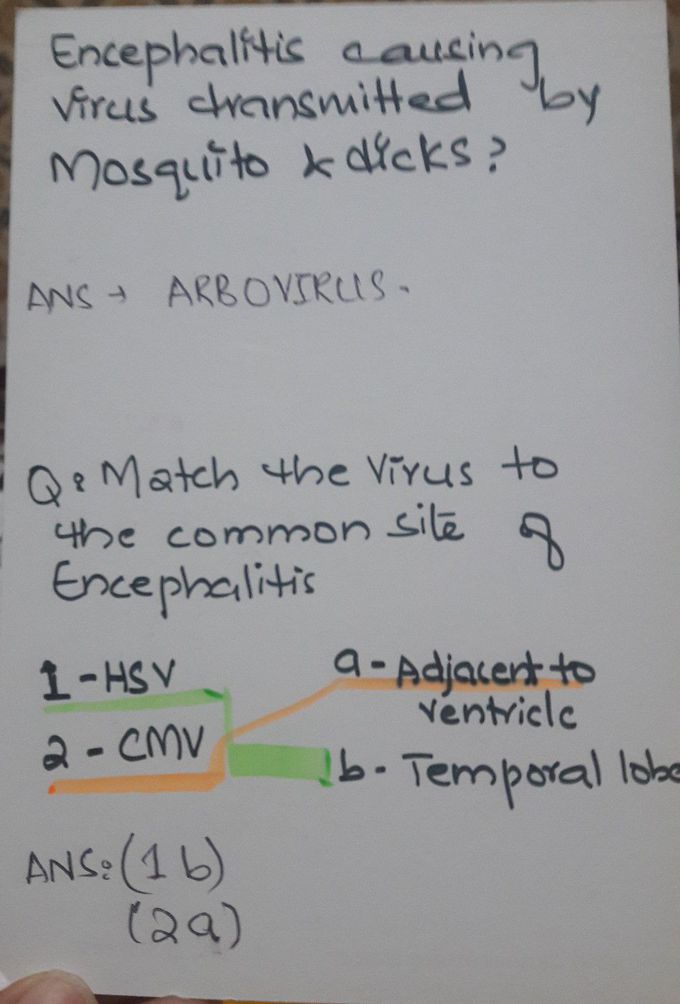 Encephalitis causing
virus transmitted by
Mosquito & ticks?
ANS → ARBOVIRUS.
Q: Match the virus to
the common site of
Encephalitis
1 - HSV
2 - CMV
a - Adjacent to
ventricle
b - Temporal lobe
ANS: (1 b)
(2a)